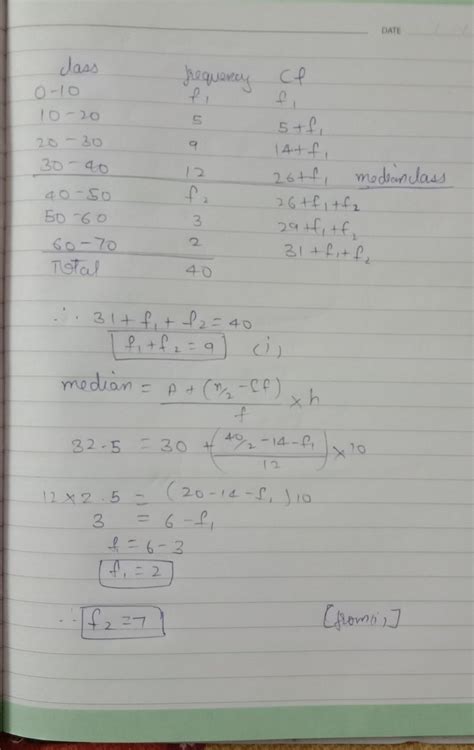 DATE
class frequency Cf
0-10 f₁ f₁
10-20 5 5+f₁
20-30 9 14+f₁
30-40 12 26+f₁ medianclass
40-50 f₂ 26+f₁+f₂
50-60 3 29+f₁+f₂
60-70 2 31+f₁+f₂
Total 40
∴ 31+f₁+f₂=40
f₁+f₂=9 (i)
median = A+(n/2-Cf)/f ×h
32.5 = 30+((40/2-14-f₁)/12)×10
12×2.5 = (20-14-f₁)10
3 = 6-f₁
f=6-3
f₁=2
∴ f₂=7 [from i,]